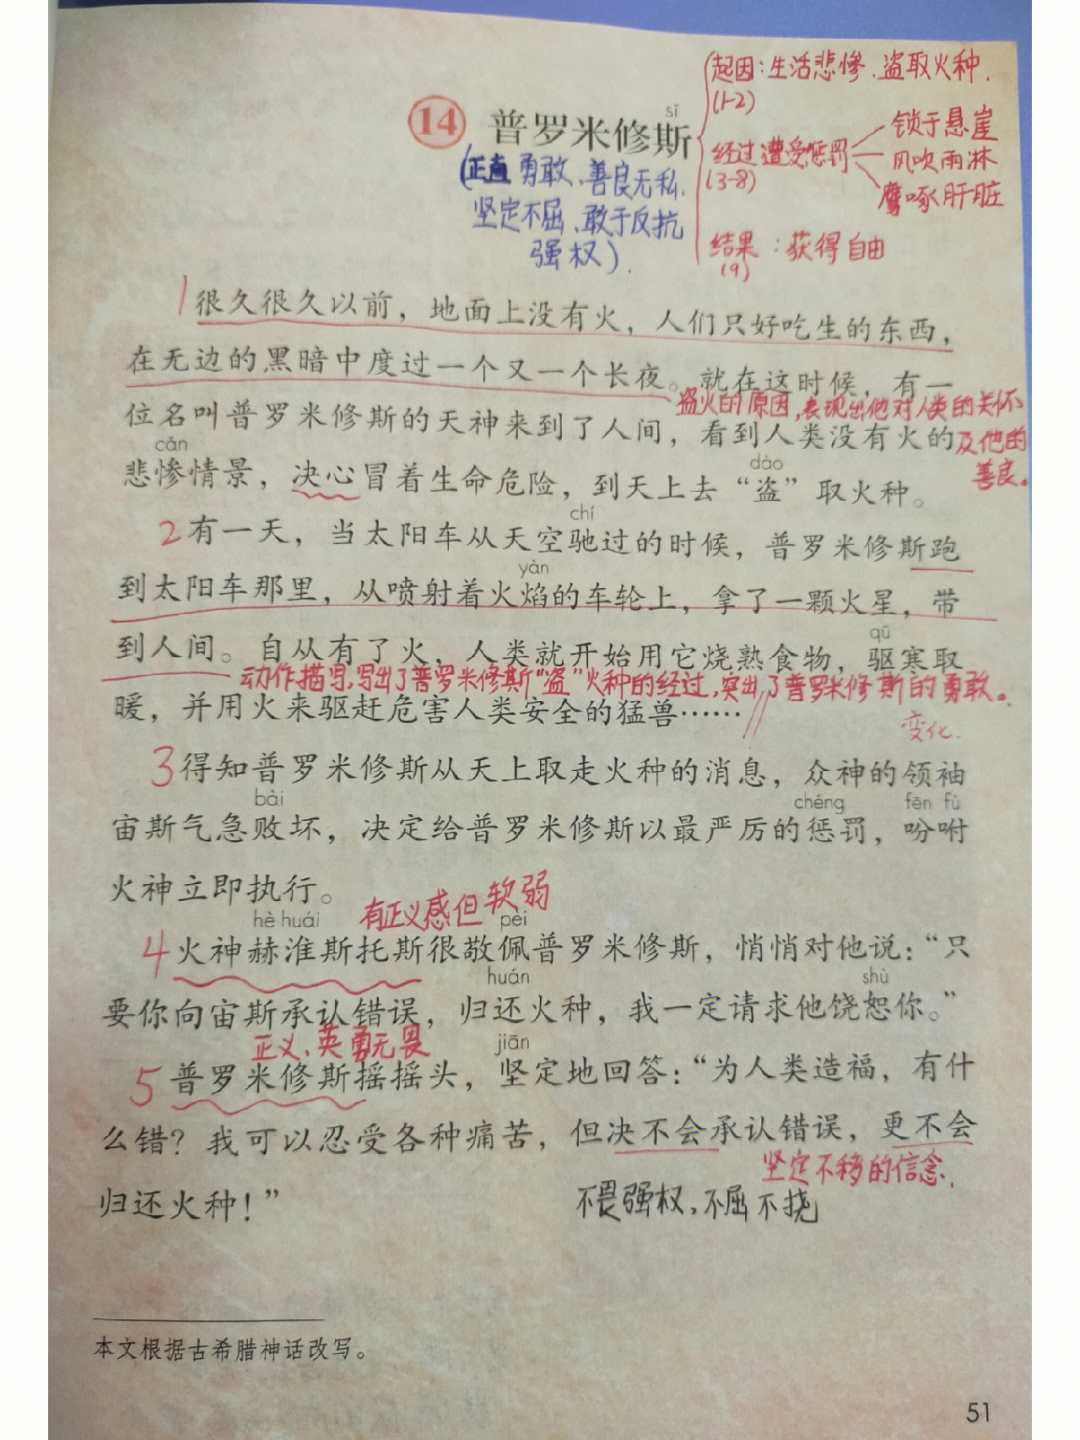 起因：生活悲惨、盗取火种.
(1-2)
sī
14 普罗米修斯
经过 遭受惩罚
(3-8)
锁于悬崖
风吹雨淋
鹰啄肝脏
结果：获得自由
(9)
(正直 勇敢、善良无私.
坚定不屈、敢于反抗
强权).
1 很久很久以前，地面上没有火，人们只好吃生的东西，
在无边的黑暗中度过一个又一个长夜。就在这时候，有一
盗火的原因,表现出他对人类的关怀
位名叫普罗米修斯的天神来到了人间，看到人类没有火的
及他的
善良。
cǎn dào
悲惨情景，决心冒着生命危险，到天上去“盗”取火种。
chí
2 有一天，当太阳车从天空驰过的时候，普罗米修斯跑
yàn
到太阳车那里，从喷射着火焰的车轮上，拿了一颗火星，带
qū
到人间。自从有了火，人类就开始用它烧熟食物，驱寒取
动作描写,写出了普罗米修斯“盗”火种的经过,突出了普罗米修斯的勇敢。
暖，并用火来驱赶危害人类安全的猛兽……
变化.
3 得知普罗米修斯从天上取走火种的消息，众神的领袖
bài chéng fēn fù
宙斯气急败坏，决定给普罗米修斯以最严厉的惩罚，吩咐
火神立即执行。
有正义感但软弱
hè huái pèi
4 火神赫淮斯托斯很敬佩普罗米修斯，悄悄对他说：“只
huán shù
要你向宙斯承认错误，归还火种，我一定请求他饶恕你。”
正义、英勇无畏
jiān
5 普罗米修斯摇摇头，坚定地回答：“为人类造福，有什
么错？我可以忍受各种痛苦，但决不会承认错误，更不会
坚定不移的信念.
归还火种！”
不畏强权,不屈不挠
本文根据古希腊神话改写。
51